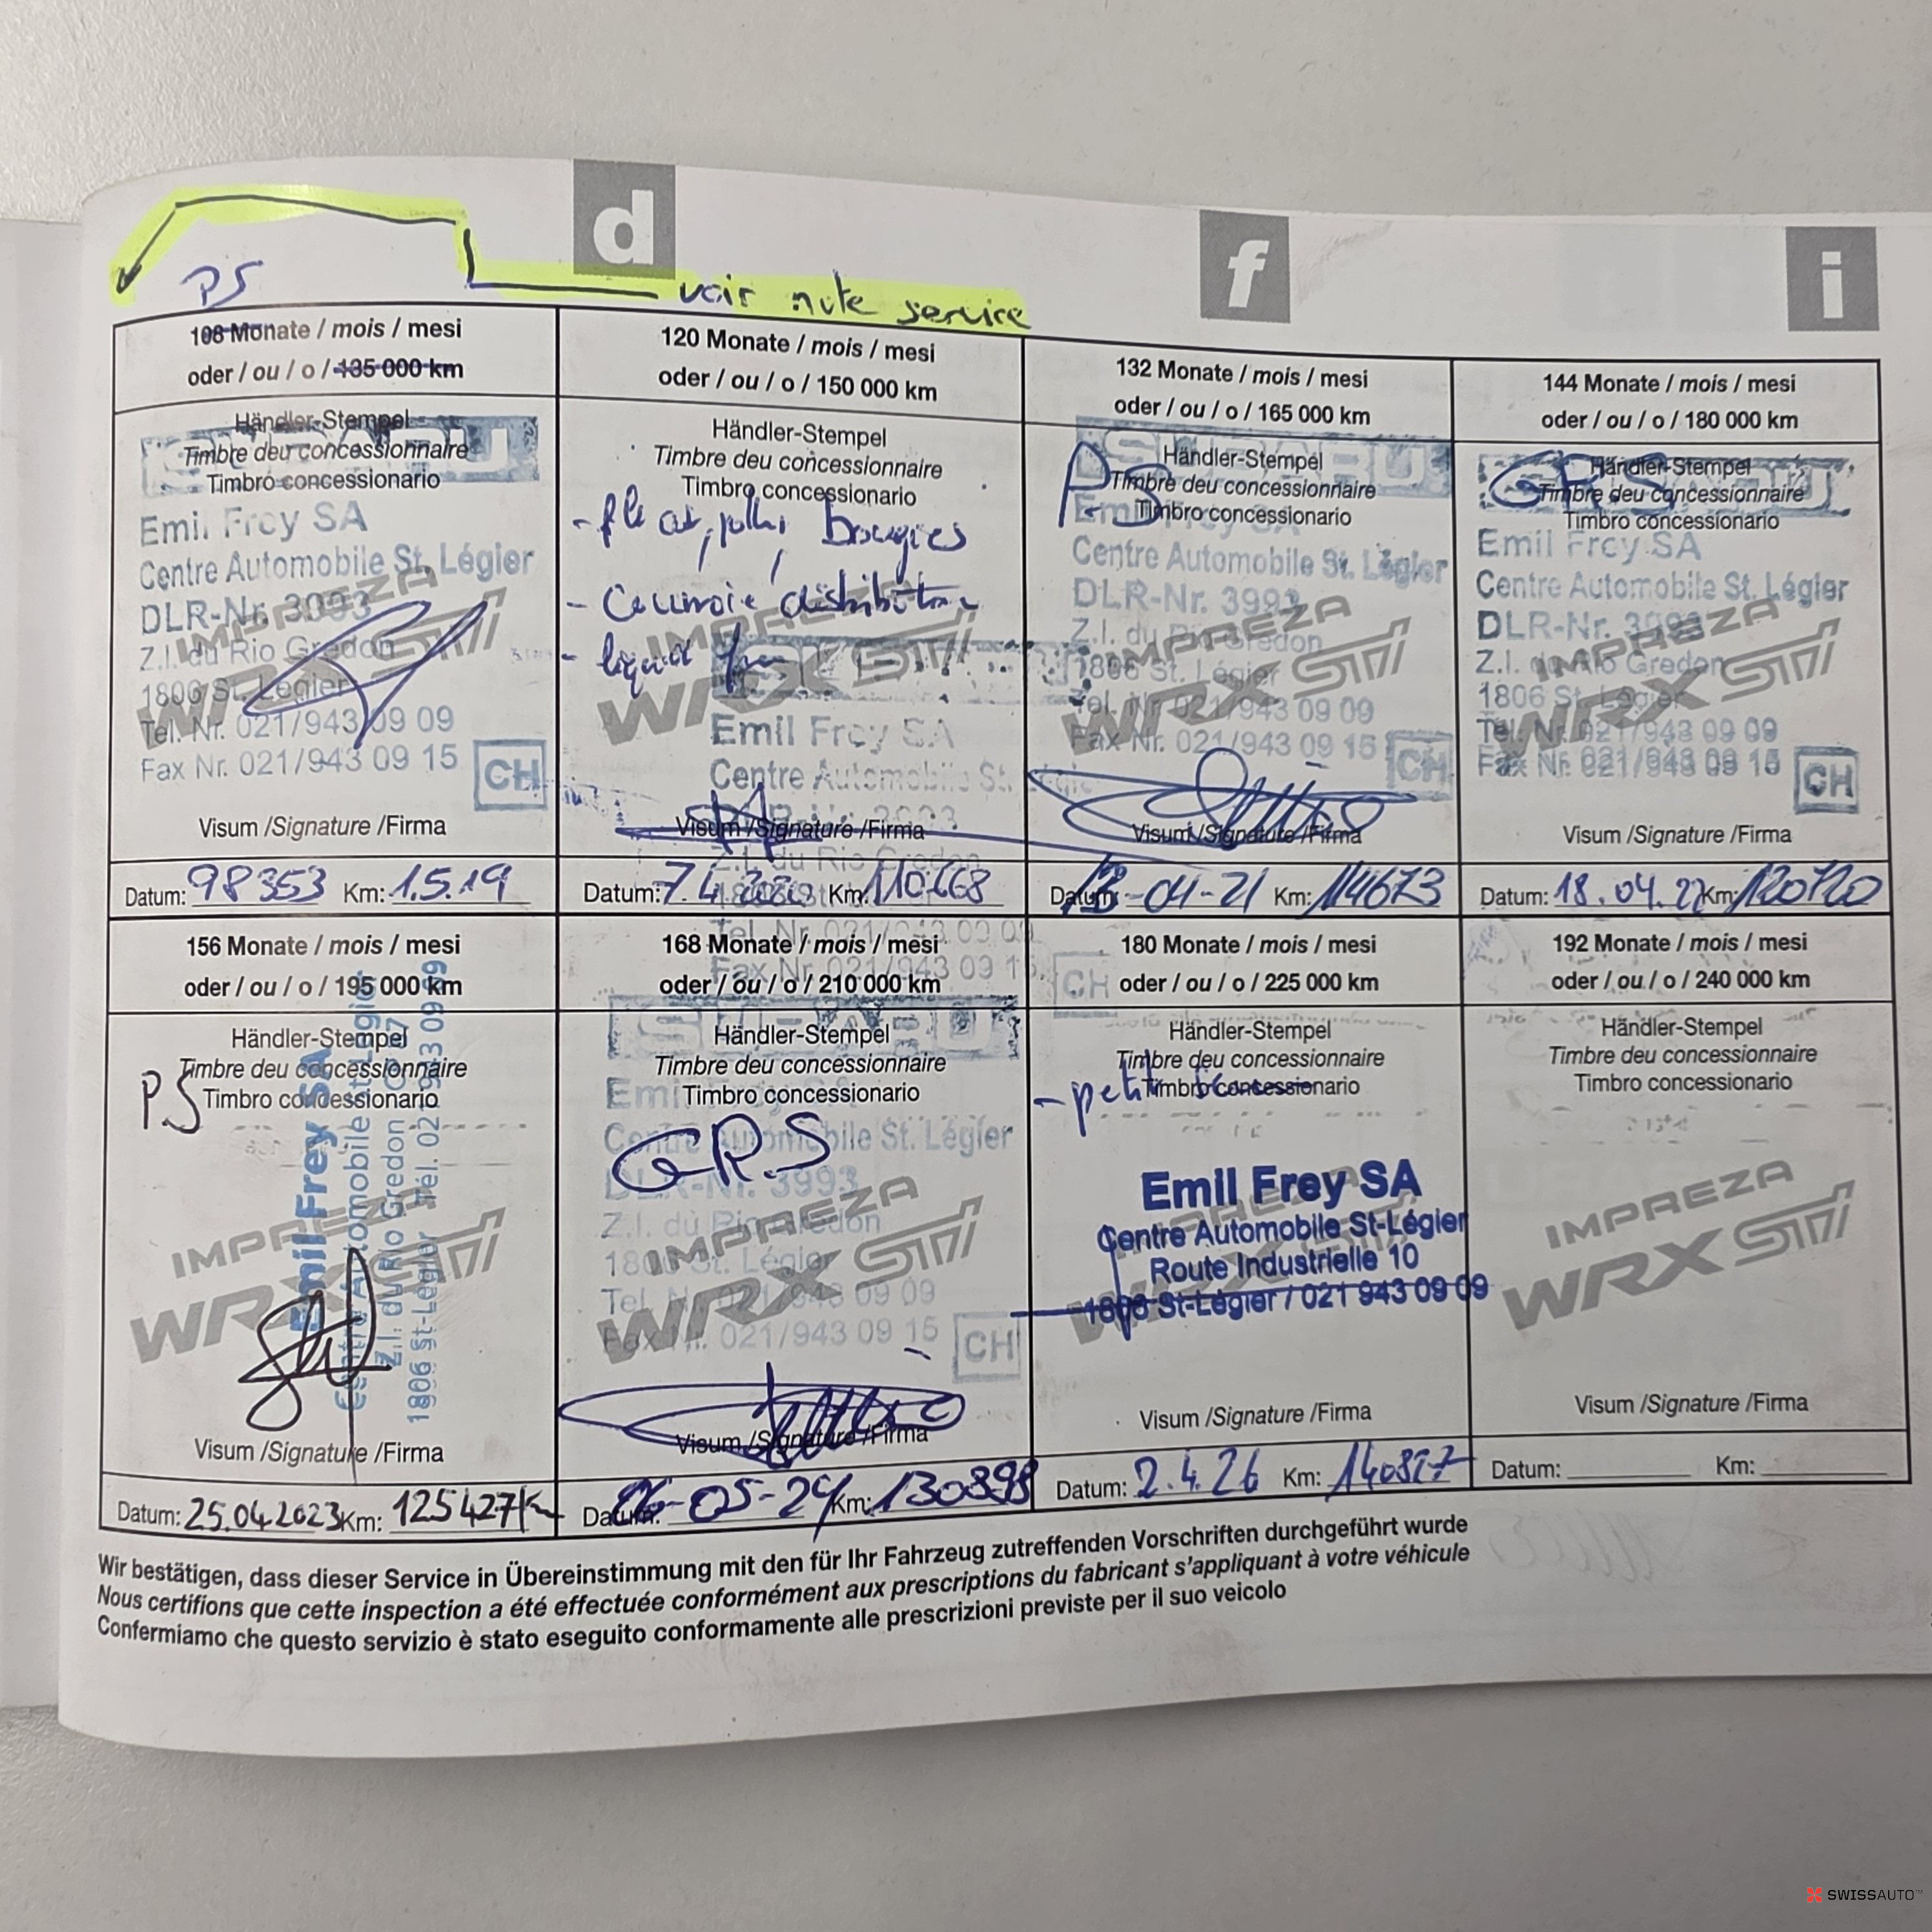 d
f
i
PS
voir note service
108 Monate / mois / mesi
oder / ou / o / 135 000 km
Händler-Stempel
Timbre deu concessionnaire
Timbro concessionario
SUBARU
Emil Frey SA
Centre Automobile St. Légier
DLR-Nr. 3993
Z.I. du Rio Gredon
1806 St. Légier
Tel. Nr. 021/943 09 09
Fax Nr. 021/943 09 15
CH
IMPREZA
WRX STI
Visum /Signature /Firma
Datum: 98353 Km: 1.5.19
120 Monate / mois / mesi
oder / ou / o / 150 000 km
Händler-Stempel
Timbre deu concessionnaire
Timbro concessionario
bougies
- Courroie distribution
- liquid
IMPREZA
WRX STI
Emil Frey SA
Centre Automobile St. Légier
DLR-Nr. 3993
Visum /Signature /Firma
Z.I. du Rio Gredon
Datum: 7.4.2020 Km: 110668
Tel. Nr. 021/943 09 09
Fax Nr. 021/943 09 15
CH
132 Monate / mois / mesi
oder / ou / o / 165 000 km
SUBARU
Händler-Stempel
Timbre deu concessionnaire
Timbro concessionario
PS
Emil Frey SA
Centre Automobile St. Légier
DLR-Nr. 3993
Z.I. du Rio Gredon
1806 St. Légier
Tel. Nr. 021/943 09 09
Fax Nr. 021/943 09 15
CH
IMPREZA
WRX STI
Visum /Signature /Firma
Datum: 13-04-21 Km: 114673
144 Monate / mois / mesi
oder / ou / o / 180 000 km
Händler-Stempel
Timbre deu concessionnaire
Timbro concessionario
GRS
Emil Frey SA
Centre Automobile St. Légier
DLR-Nr. 3993
Z.I. du Rio Gredon
1806 St. Légier
Tel. Nr. 021/943 09 09
Fax Nr. 021/943 09 15
CH
IMPREZA
WRX STI
Visum /Signature /Firma
Datum: 18.04.22 Km: 120720
156 Monate / mois / mesi
oder / ou / o / 195 000 km
Händler-Stempel
Timbre deu concessionnaire
Timbro concessionario
PS
Emil Frey SA
Centre Automobile St-Légier
Z.I. du Rio Gredon
1806 St-Légier Tél. 021 943 09 09
IMPREZA
WRX STI
Visum /Signature /Firma
Datum: 25.04.2023 Km: 125427 Km
168 Monate / mois / mesi
oder / ou / o / 210 000 km
SUBARU
Händler-Stempel
Timbre deu concessionnaire
Timbro concessionario
Emil Frey SA
Centre Automobile St. Légier
G.R.S
DLR-Nr. 3993
Z.I. du Rio Gredon
1806 St. Légier
Tel. Nr. 021/943 09 09
Fax Nr. 021/943 09 15
CH
IMPREZA
WRX STI
Visum /Signature /Firma
Datum: 26-05-24 Km: 130898
180 Monate / mois / mesi
oder / ou / o / 225 000 km
Händler-Stempel
Timbre deu concessionnaire
Timbro concessionario
- petit
Emil Frey SA
Centre Automobile St-Légier
Route Industrielle 10
1806 St-Légier / 021 943 09 09
IMPREZA
WRX STI
Visum /Signature /Firma
Datum: 2.4.26 Km: 140827
192 Monate / mois / mesi
oder / ou / o / 240 000 km
Händler-Stempel
Timbre deu concessionnaire
Timbro concessionario
IMPREZA
WRX STI
Visum /Signature /Firma
Datum: Km:
Wir bestätigen, dass dieser Service in Übereinstimmung mit den für Ihr Fahrzeug zutreffenden Vorschriften durchgeführt wurde
Nous certifions que cette inspection a été effectuée conformément aux prescriptions du fabricant s'appliquant à votre véhicule
Confermiamo che questo servizio è stato eseguito conformamente alle prescrizioni previste per il suo veicolo
SWISSAUTO